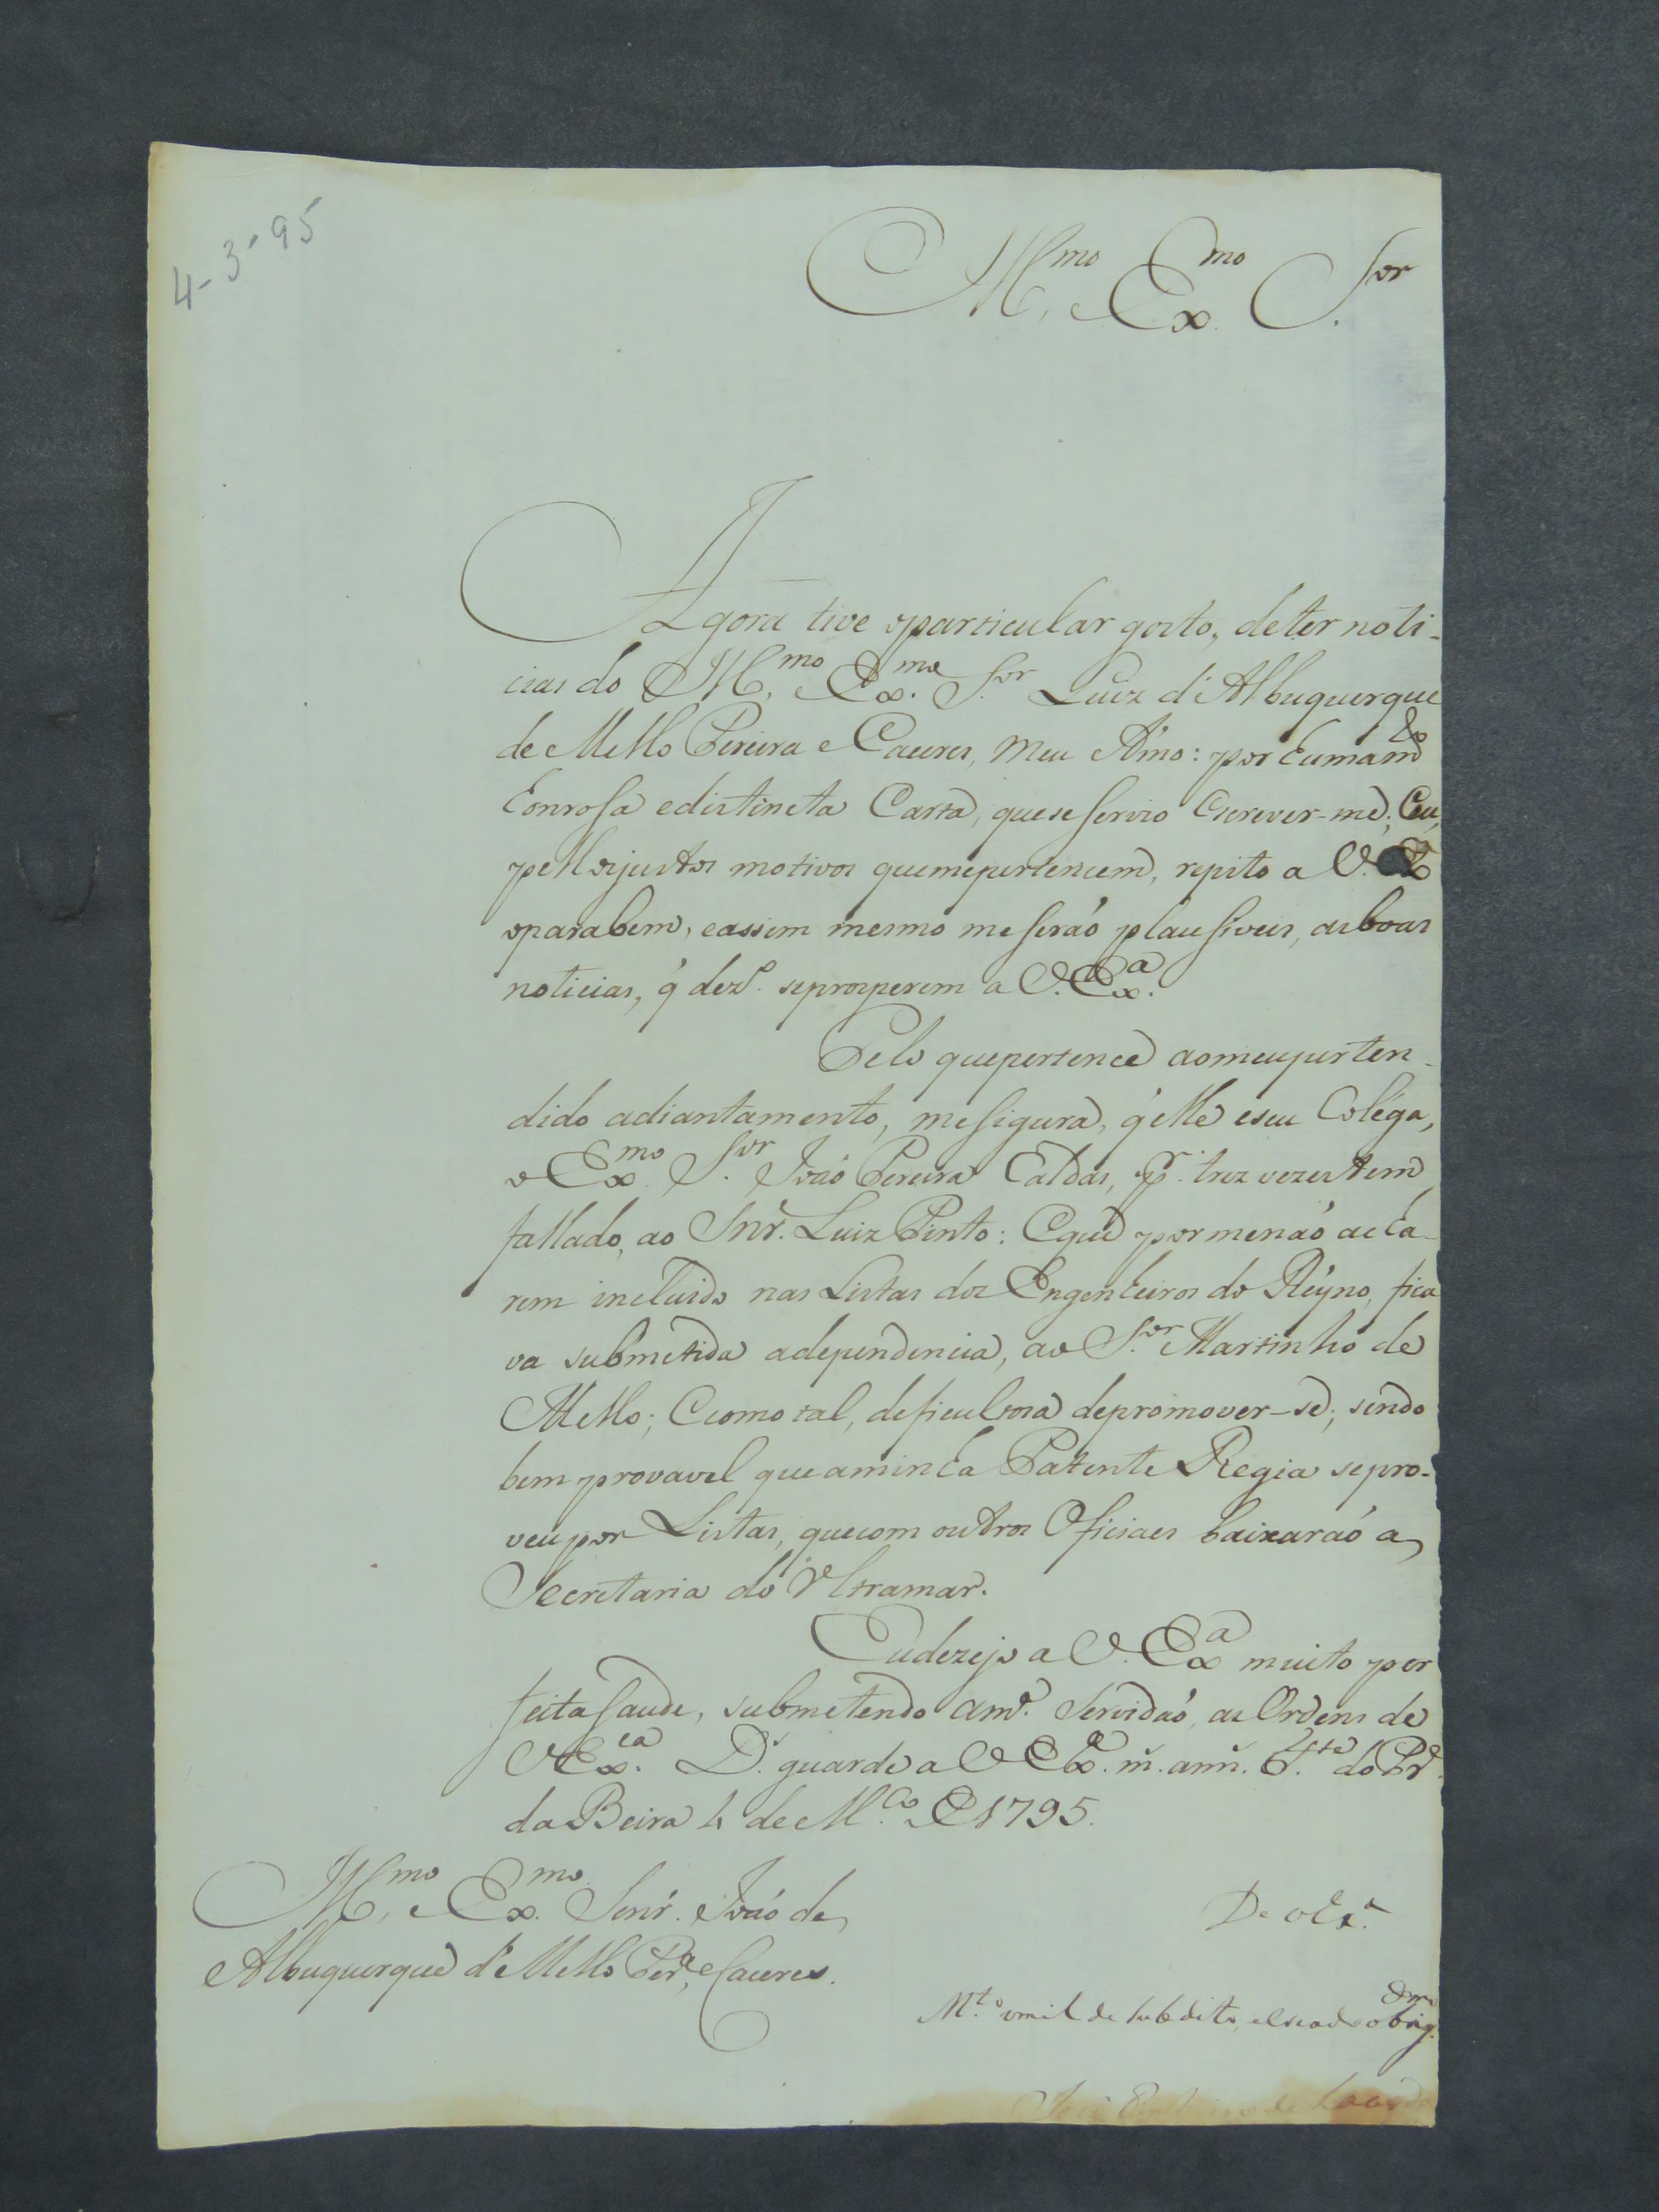 4-3-95
Ill.mo e Ex.mo S.or
Agora tive o particular gosto, de ter noti-
cias do Ill.mo e Ex.mo S.or Luiz d'Albuquerque
de Mello Pereira e Caceres, meu Amo: por huma m.to
honrosa e distincta Carta, que se servio escrever-me; e eu,
pellos justos motivos que me pertencem, repito a V. Ex
o parabem, e assim mesmo me serão plausiveis, as boas
noticias, q̃ dez.o se prosperem a V. Ex.a
Pelo que pertence ao meu perten-
dido adiantamento, me figura, q̃ elle e seu Coléga,
o Ex.mo S.or João Pereira Caldas, p.r trez vezes tem
fallado, ao Snr. Luiz Pinto: E que por me não acha-
rem incluido nas Listas dos Engenheiros do Reyno, fica
va submetida a dependencia, ao S.or Martinho de
Mello; E como tal, deficultosa de promover-se; sendo
bem provavel que a minha Patente Regia se pro-
veu por Listas, que com outros Oficiaes baixarão a
Secretaria do Ultramar.
Eu dezejo a V. Ex.a muito per
feita saude, submetendo a m.a servidão, as Ordens de
V Ex.cia D.s guarde a V Ex.a m. ann. F.te do Pr.
da Beira 4 de M.ço de 1795.
Ill.mo e Ex.mo Senr. João de
Albuquerque d'Mello Per.a e Caceres.
De V Ex.a
M.to umilde subdito, e criado obrig.dmo